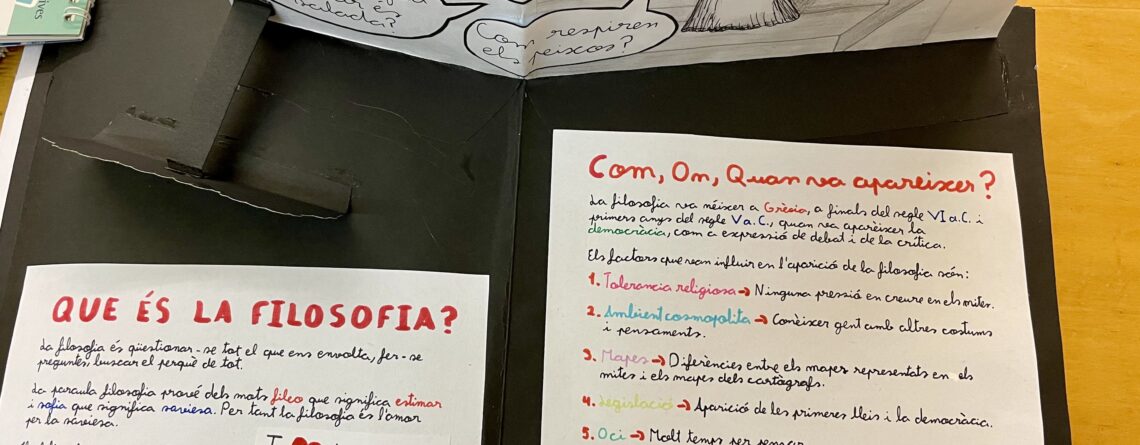 ives
és
salada?
Com respiren
els peixos?
QUE ÉS LA FILOSOFIA?
La filosofia és qüestionar-se tot el que ens envolta, fer-se
preguntes, buscar el perquè de tot.
La paraula filosofia prové dels mots fileo que significa estimar
i sofia que significa saviesa. Per tant la filosofia és l'amor
per la saviesa.
I
Com, On, Quan va aparèixer?
La filosofia va néixer a Grècia, a finals del segle VI a.C. i
primers anys del segle V a.C., quan va aparèixer la
democràcia, com a expressió de debat i de la crítica.
Els factors que van influir en l'aparició de la filosofia són:
1. Tolerancia religiosa → Ninguna pressió en creure en els mites.
2. Ambient cosmopolita → Conèixer gent amb altres costums
i pensaments.
3. Mapes → Diferències entre els mapes representats en els
mites i els mapes dels cartògrafs.
4. Legislació → Aparició de les primeres lleis i la democràcia.
5. Oci → Molt temps per pensar